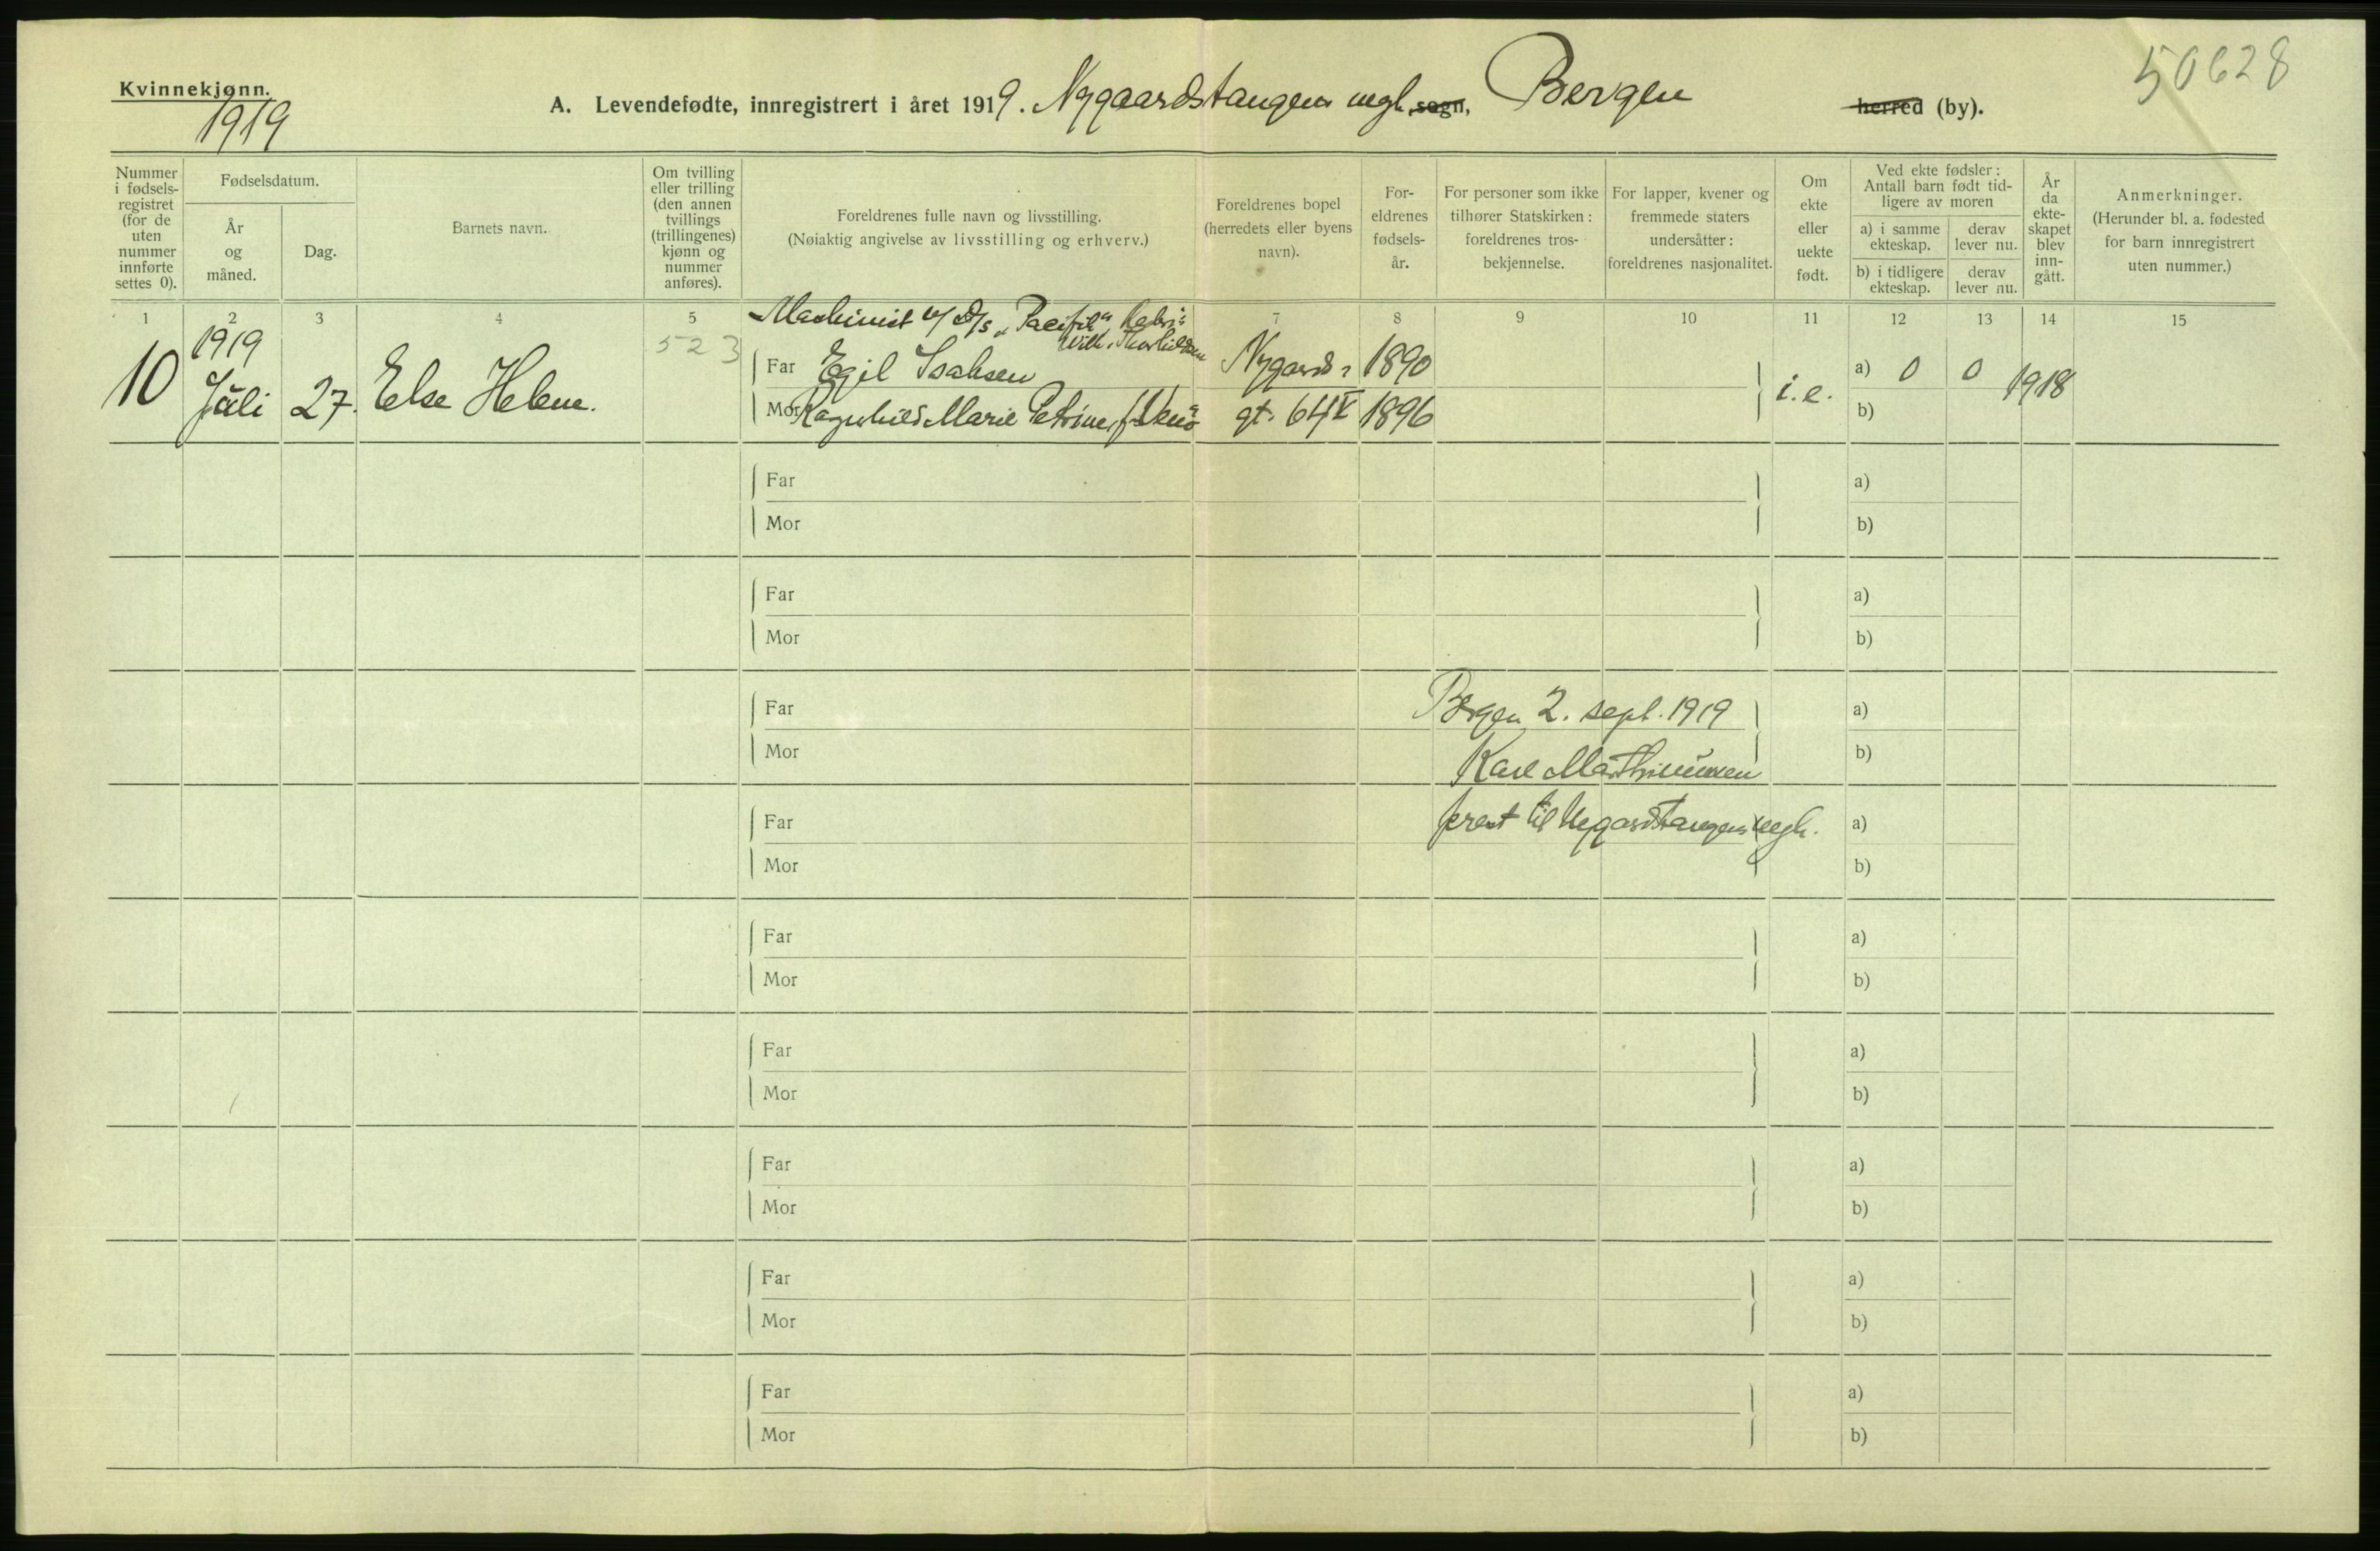 50628
Kvinnekjønn.
1919
A. Levendefødte, innregistrert i året 1919. Nygaardstangens megh. sogn, Bergen herred (by).
Nummer i fødsels-registret (for de uten nummer innførte settes 0).
Fødselsdatum.
År og måned.
Dag.
Barnets navn.
Om tvilling eller trilling (den annen tvillings (trillingenes) kjønn og nummer anføres).
Foreldrenes fulle navn og livsstilling.
(Nøiaktig angivelse av livsstilling og erhverv.)
Foreldrenes bopel (herredets eller byens navn).
For-eldrenes fødsels-år.
For personer som ikke tilhører Statskirken: foreldrenes tros-bekjennelse.
For lapper, kvener og fremmede staters undersåtter: foreldrenes nasjonalitet.
Om ekte eller uekte født.
Ved ekte fødsler: Antall barn født tid-ligere av moren
a) i samme ekteskap.
derav lever nu.
b) i tidligere ekteskap.
derav lever nu.
År da ekte-skapet blev inn-gått.
Anmerkninger.
(Herunder bl. a. fødested for barn innregistrert uten nummer.)
1 2 3 4 5 7 8 9 10 11 12 13 14 15
Maskinist D/S "Pacific"
523
10 1919 Juli 27. Else Helene.
Far Egil Isaksen Nygaards- 1890
Mor Ragnhild Marie Petrine gt. 64 1896
i.e. a) 0 0 1918
b)
Far a)
Mor b)
Far a)
Mor b)
Far Bergen 2. sept. 1919 a)
Mor Karl Marthinussen b)
Far prest til Nygardstangens megh. a)
Mor b)
Far a)
Mor b)
Far a)
Mor b)
Far a)
Mor b)
Far a)
Mor b)
Far a)
Mor b)